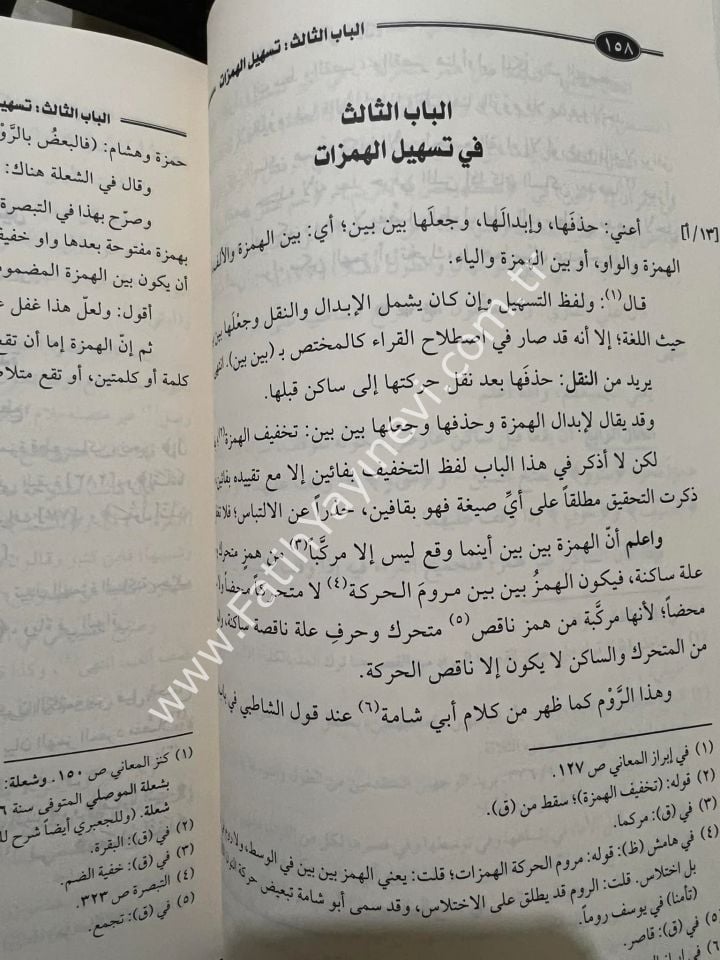 ١٥٨
الباب الثالث: تسهيل الهمزات
الباب الثالث
في تسهيل الهمزات
[١٣/أ]
أعني: حذفَها، وإبدالَها، وجعلَها بين بين؛ أي: بين الهمزة والألف
الهمزة والواو، أو بين الهمزة والياء.
قال(١): ولفظ التسهيل وإن كان يشمل الإبدال والنقل وجعْلَها بين
حيث اللغة؛ إلا أنه قد صار في اصطلاح القراء كالمختص بـ (بين بين).
يريد من النقل: حذفَها بعد نقل حركتها إلى ساكن قبلها.
وقد يقال لإبدال الهمزة وحذفها وجعلها بين بين: تخفيف الهمزة(٢)
لكن لا أذكر في هذا الباب لفظ التخفيف بفائين إلا مع تقييده
ذكرت التحقيق مطلقاً على أيِّ صيغة فهو بقافين، حذراً عن الالتباس؛
واعلم أنّ الهمزة بين بين أينما وقع ليس إلا مركَّباً(٣) من همز متحرك
علة ساكنة، فيكون الهمزُ بين بين مرومَ الحركة(٤) لا متحركاً محضاً
محضاً؛ لأنها مركَّبة من همز ناقص(٥) متحرك وحرفِ علة ناقصة ساكنة،
من المتحرك والساكن لا يكون إلا ناقص الحركة.
وهذا الرَّوْم كما ظهر من كلام أبي شامة(٦) عند قول الشاطبي في
(١) في إبراز المعاني ص ١٢٧.
(٢) قوله: (تخفيف الهمزة)؛ سقط من (ق).
(٣) في (ق): مركما.
(٤) في هامش (ظ): قوله: مروم الحركة الهمزات؛ قلت: يعني الهمز بين بين في الوسط، ولا
بل اختلاس. قلت: الروم قد يطلق على الاختلاس، وقد سمى أبو شامة تبعيض حركة
(تأمنا) في يوسف روماً.
(٥) في (ق): قاصر.
الباب الثالث:
حمزة وهشام: (فالبعضُ
وقال في الشعلة هناك:
وصرّح بهذا في التبصرة
بهمزة مفتوحة بعدها واو
أن يكون بين الهمزة
أقول: ولعلّ هذا غفل
ثم إنّ الهمزة إما أن
كلمة أو كلمتين، أو تقع
(١) كنز المعاني ص ١٥٠. وشعلة:
بشعلة الموصلي المتوفى سنة
شعلة. (وللجعبري أيضاً شرح
(٢) في (ق): البقرة.
(٣) في (ق): خفية الضم.
(٤) التبصرة ص ٣٢٣.
(٥) في (ق): تجمع.
www.FatihYayinevi.com.tr